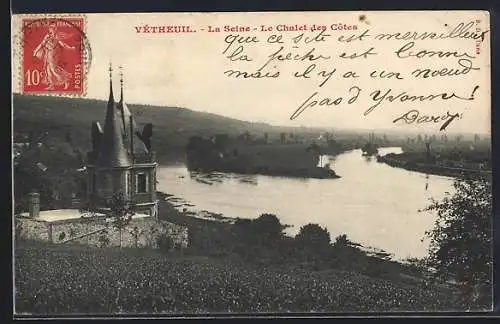 VÉTHEUIL. - La Seine - Le Chalet des Côtes
que ce site est merveilleux
la pêche est bonne
mais il y a un nœud
pas d'Yvonne!
Dardy
10c